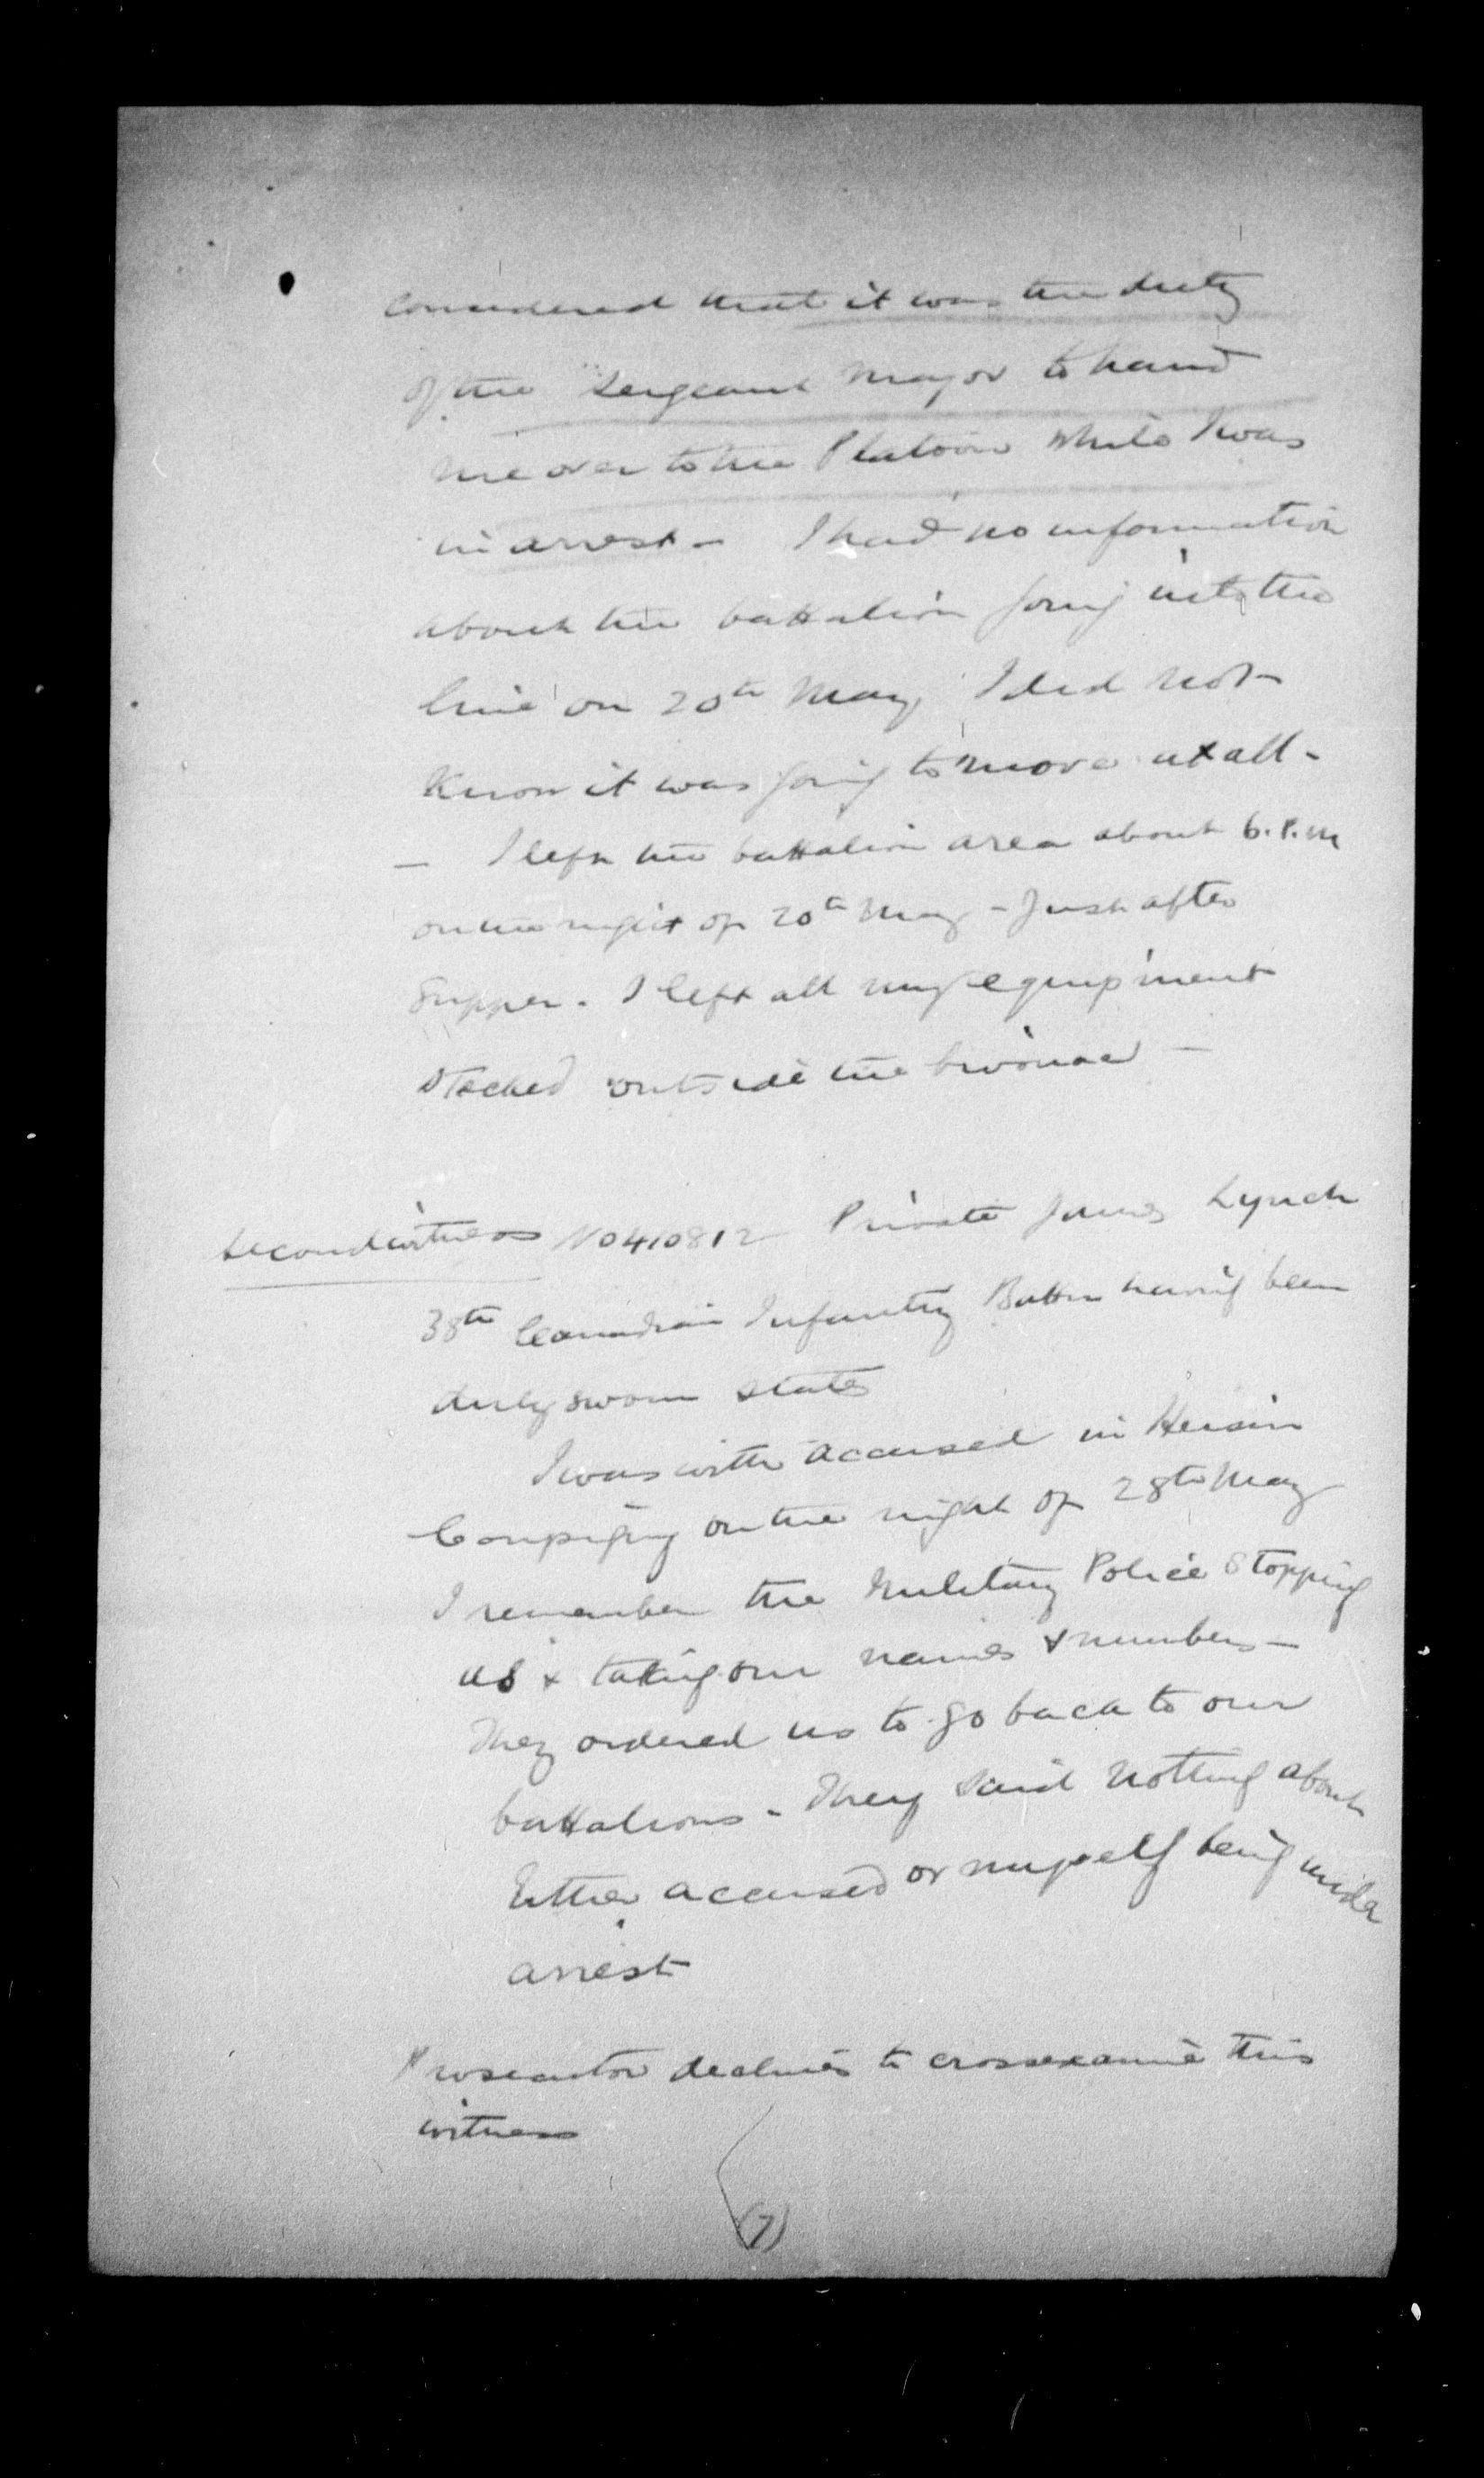 considered that it was the duty
of the Sergeant Major to hand
me over to the Platoon while I was
in arrest - I had no information
about the battalion going into the
line on 20th May, I did not
know it was going to move at all -
- I left the battalion area about 6.P.M
on the night of 20th May - Just after
Supper. I left all my equipment
stacked outside the bivouac -
Second witness No 410812 Private James Lynch
38th Canadian Infantry Battn having been
duly sworn states
I was with accused in Hersin
Coupigny on the night of 28th May
I remember the Military Police stopping
us & taking our names & numbers -
They ordered us to go back to our
battalions - They said nothing about
Either accused or myself being under
arrest
Prosecutor declines to crossexamine this
witness
(7)